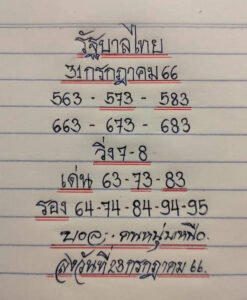 รัฐบาลไทย
31 กรกฎาคม 66
563 - 573 - 583
663 - 673 - 683
วิ่ง 7-8
เด่น 63-73-83
รอง 64-74-84-94-95
บอล : คนหนุ่มเหนือ
ส่งวันที่ 23 กรกฎาคม 66.